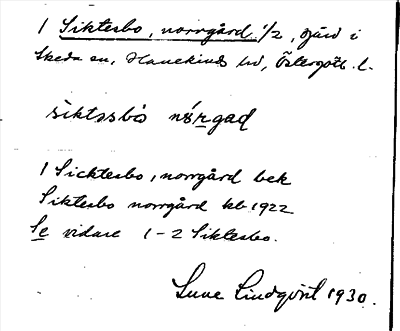 1 Siktesbo, norrgård 1/2, gård i
Skeda sn, Hanekinds hd, Östergötl. l.
siktəsbò nó̱rgaḍ
1 Sicktesbo, norrgård bek
Siktesbo norrgård kb 1922
Se vidare 1-2 Siktesbo.
Sune Lindqvist 1930.